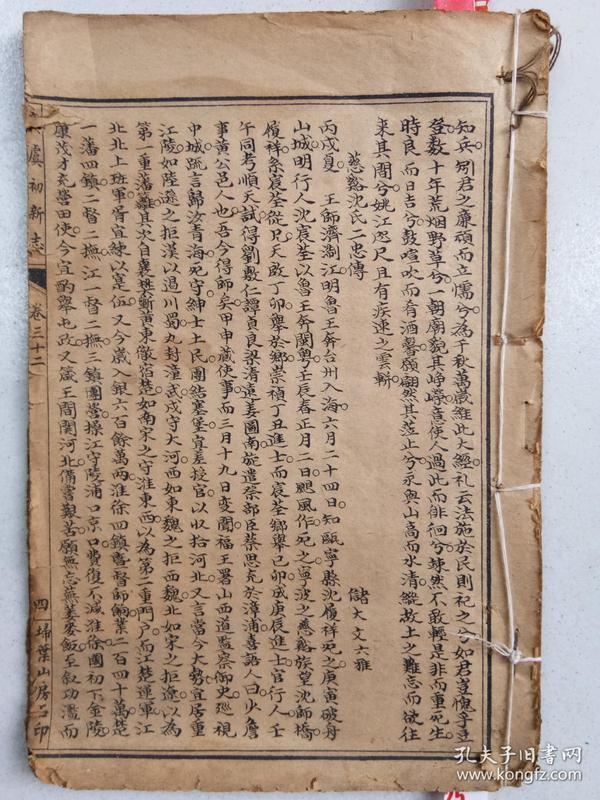 知兵刎君之廉頑而立懦兮為千秋萬歲維此大經礼云法施於民則祀之兮如君豈愧乎豆
登數十年荒烟野草兮一朝廟貌其崢嶸意使人過此而徘徊兮竦然不敢輕是非而重死生
時良而日吉兮鼓喧吹而有酒馨願翩然其蒞止兮永與山高而水清縱故土之難忘而欲往
來其間兮姚江咫尺且有疾速之雲軿
慈谿沈氏二忠傳
儲大文六雅
丙戌夏 王師濟淛江明魯王奔台州入海六月二十四日知甌寧縣沈履祥死之庚寅破舟
山城明行人沈宸荃以魯王奔閩粵壬辰春正月二日颶風作死之寧波之慈谿族望沈師橋
履祥系宸荃從兄天啟丁卯舉於鄉崇禎丁丑進士而宸荃鄉舉己卯成庚辰進士官行人壬
午同考順天試得劉敷仁譚貞良梁清遠姜圖南旋遣祭部臣蔡思充於漳浦喜語人曰少詹
事黃公邑人也吾今得師矣甲申蕆使事而三月十九日變聞福王署山西道監察御史巡視
中城疏言歸汝青海死守紳士土民團結塞堡宜差授官以收拾河北又言當今大勢宜居重
江陵如陸遜之拒漢以過川蜀九封潼武戍守大河西如東魏之拒西魏北如宋之拒遼以為
第一重藩籬其次自襄樊蘄黃東徹宿楚如南宋之守淮東西以為第二重門戶而江楚運軍江
北北上班軍胥宜練以寔伍又今歲入銀六百餘萬兩淮徐四鎮暨督師餉業二百四十萬楚
一藩四鎮二督二撫江一督二撫三鎮團營操江守陵浦口京口費復不減淮徐國初下金陵
康茂才充營田使今宜酌舉屯政又箴王間關河北備嘗艱苦願無忘蕪蔞麥飯至敘功濫而
虞初新志
卷三十二
四 掃葉山房石印
孔夫子旧書网
www.kongfz.com